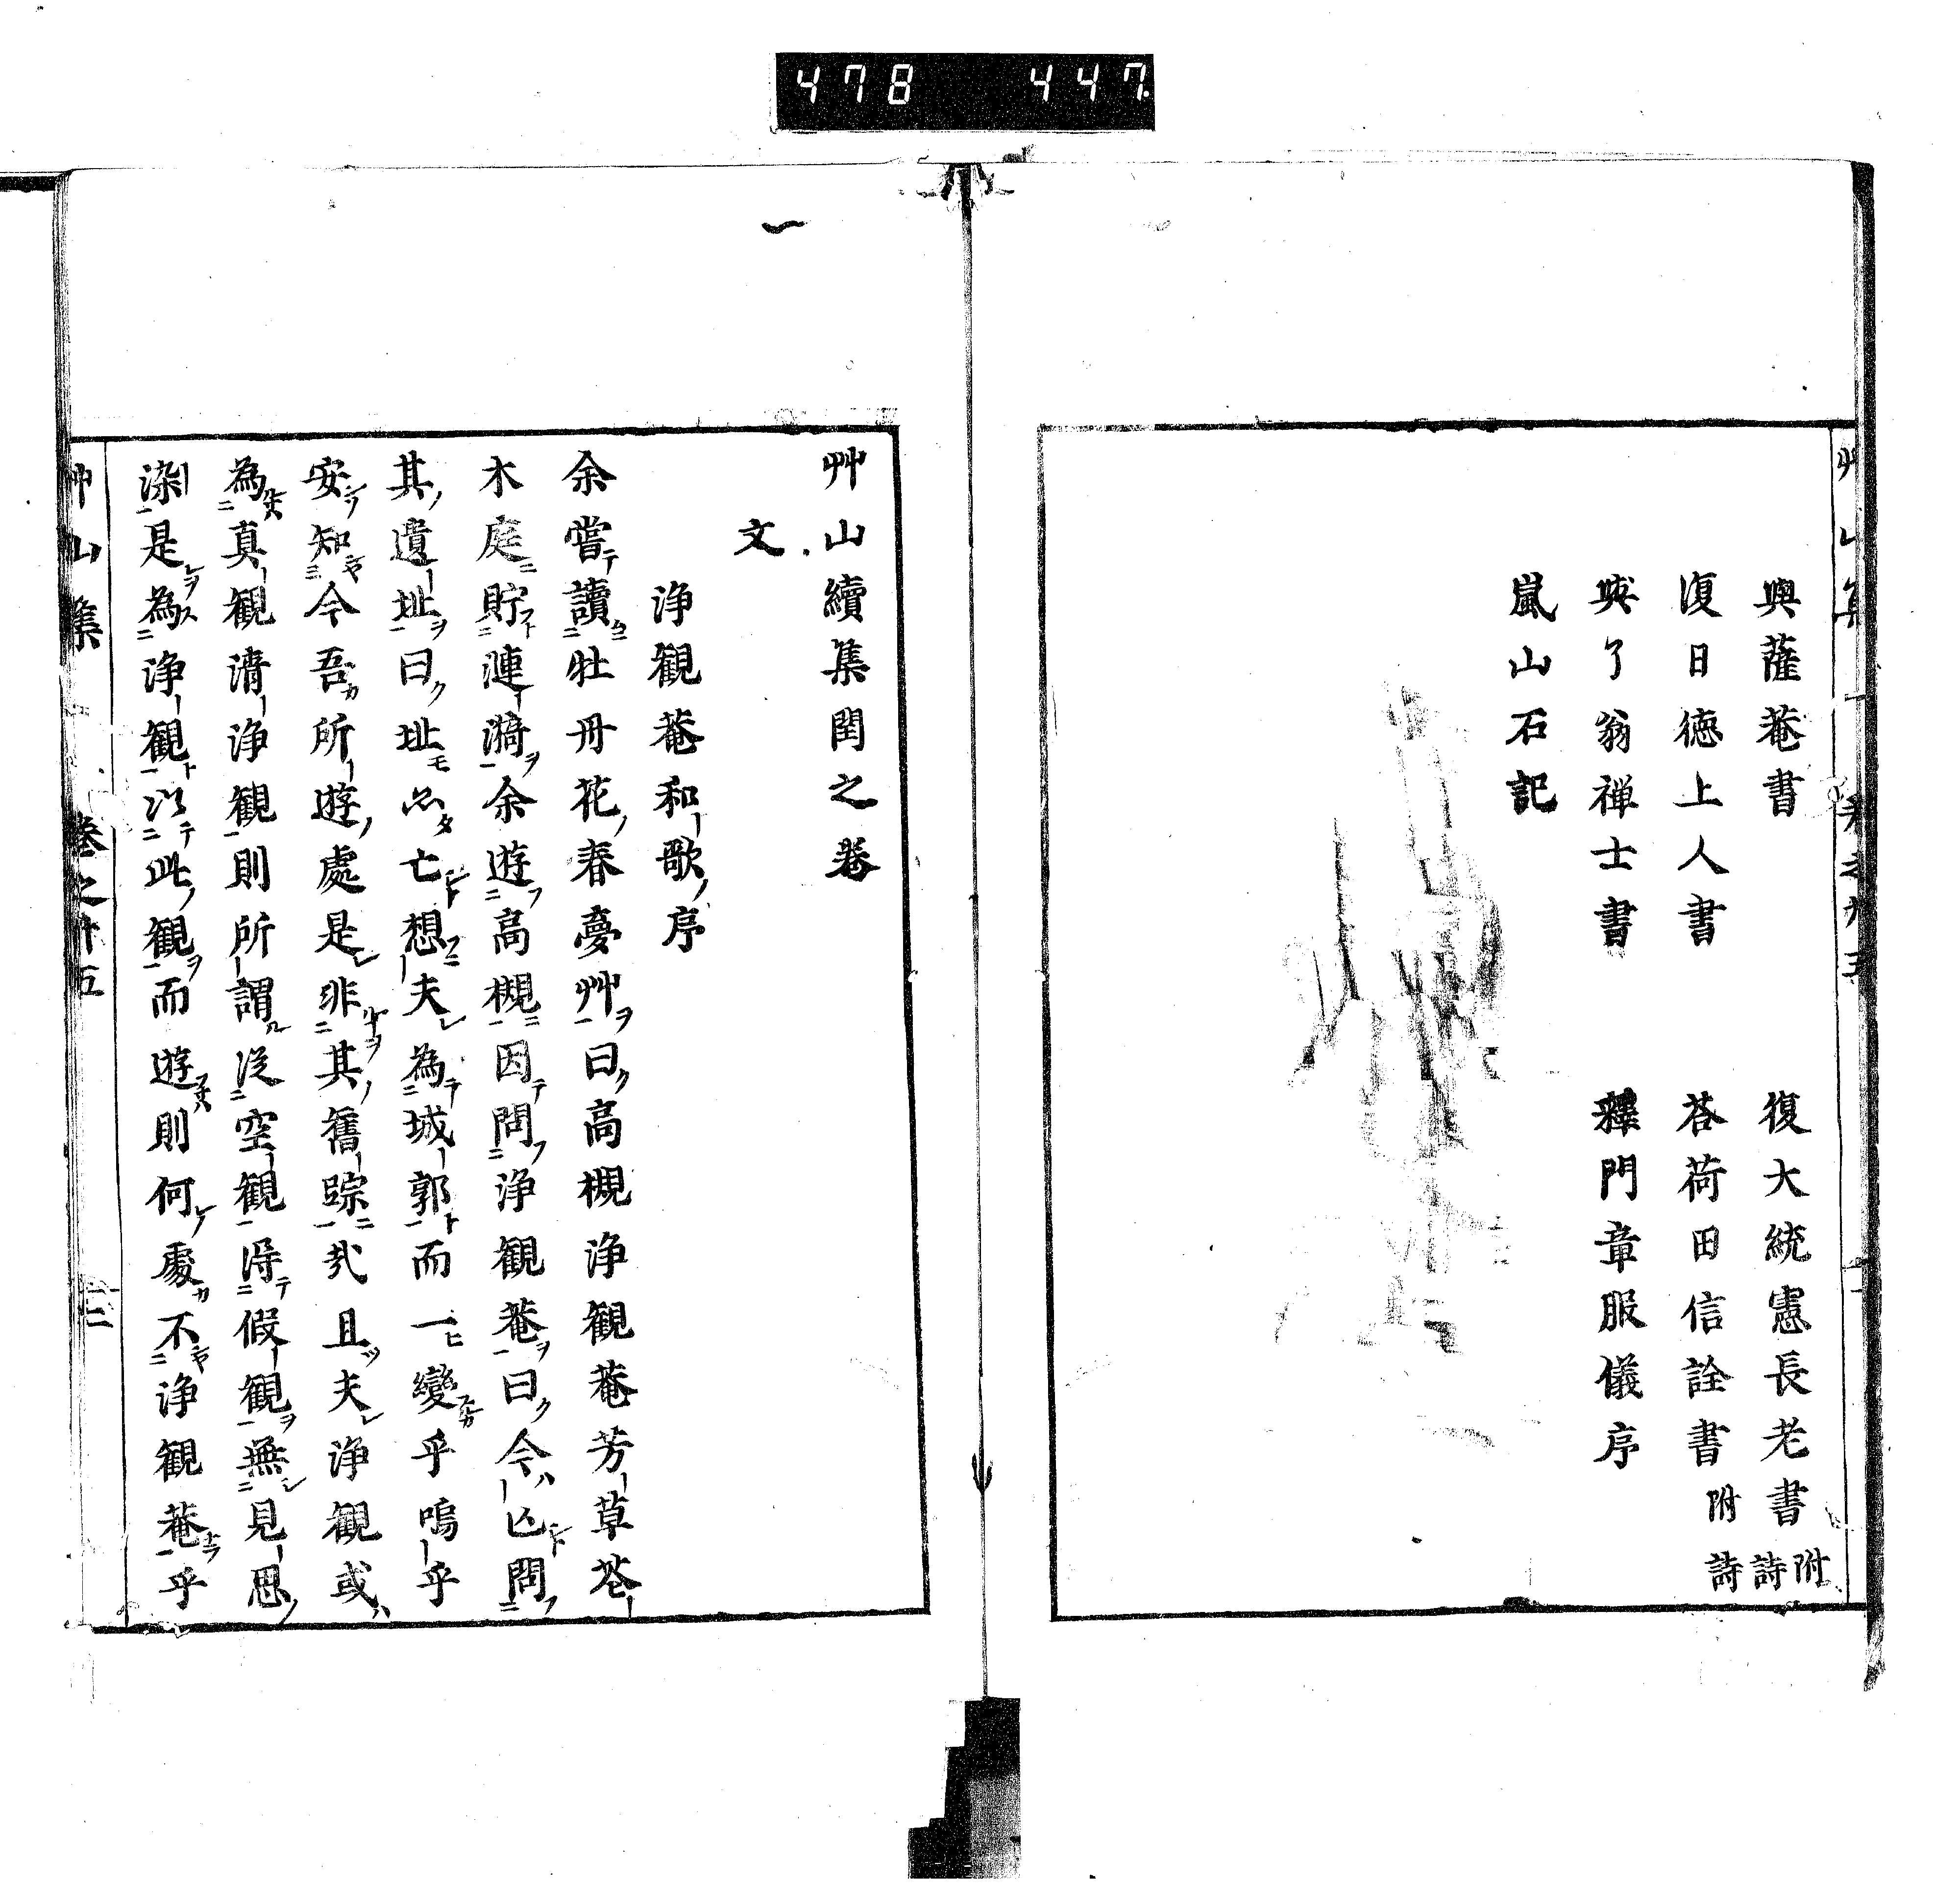 478 447
與薩菴書 復大統憲長老書附詩
復日徳上人書 荅荷田信詮書附詩
與了翁禅士書 釋門章服儀序
嵐山石記
艸山續集閏之巻
文
浄観菴和歌序
余嘗讀牡丹花春夢艸曰高槻浄観菴芳草花
木庭貯漣漪余遊高槻因問浄観菴曰今亾問
其遺址曰址亦亡想夫為城郭而一變乎嗚乎
安知今吾所遊處是非其舊踪哉且夫浄観或
為真観清浄観則所謂従空観得假観無見思
染是為浄観以此観而遊則何處不浄観菴乎
艸山集 巻之廾五 二